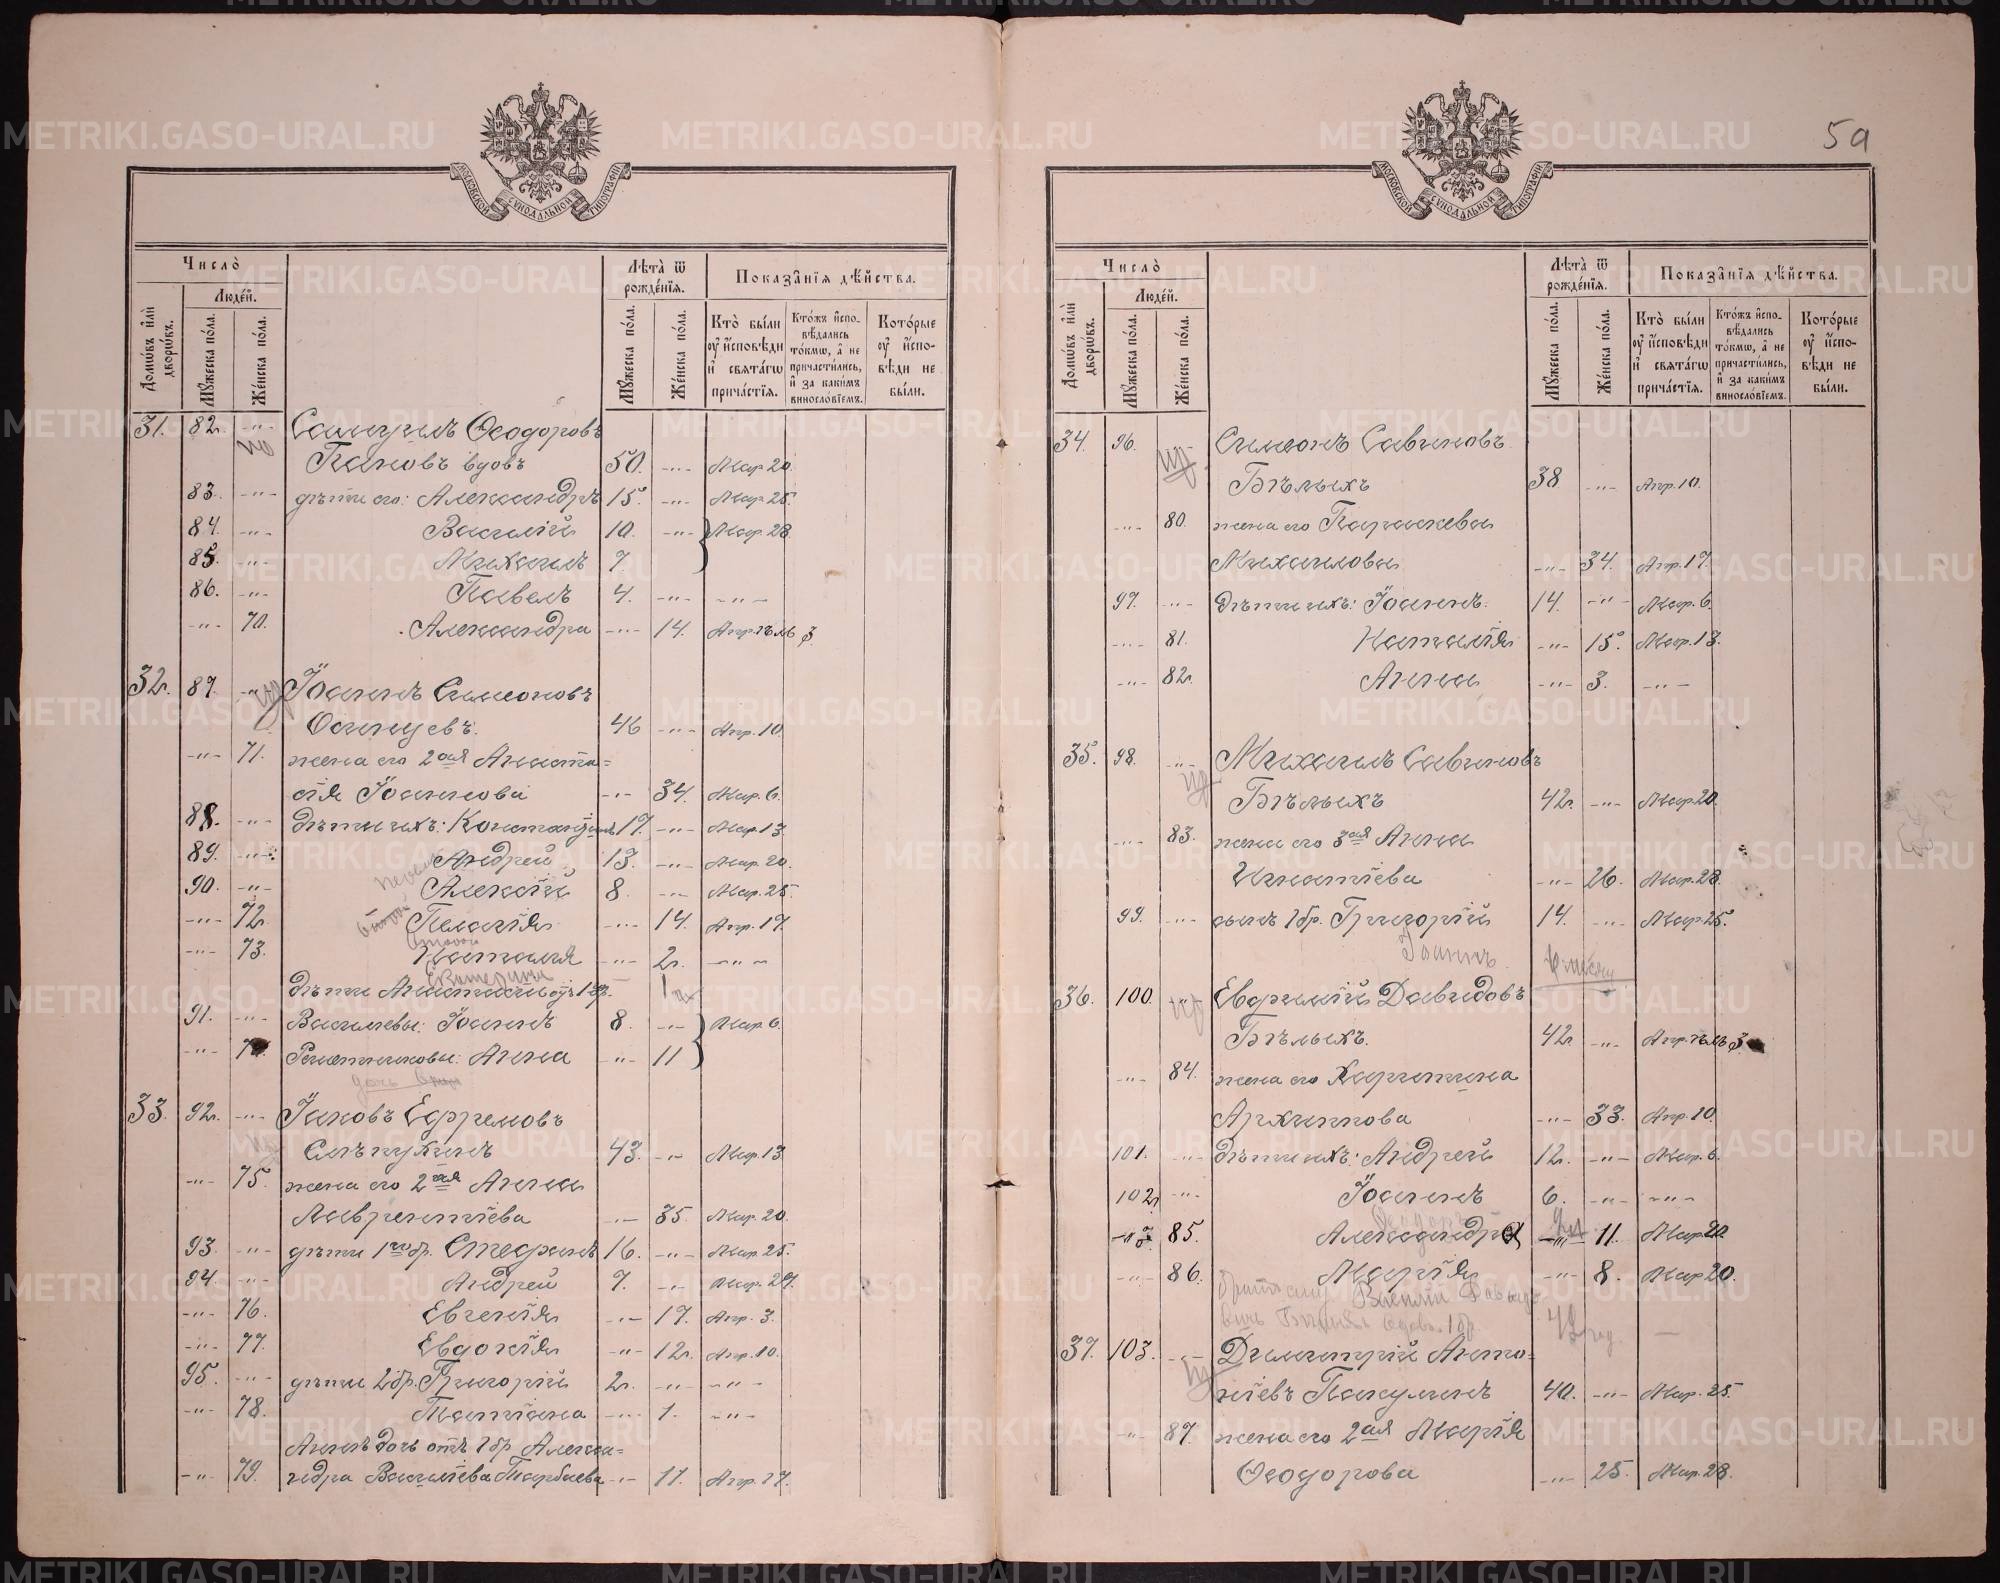 МОСКОВСКОЙ СУНОДАЛЬНОЙ ТИПОГРАФІИ
Число̀
Людéй.
Домѡ́въ и҆лѝ дворѡ́въ.
Мꙋ́жеска пóла.
Же́нска пóла.
Лѣ̑та ѿ рожде́нїѧ.
Мꙋ́жеска пóла.
Же́нска пóла.
Показа̑нїѧ дѣ́йства.
Кто̀ бы́ли ᲂу҆ и҆сповѣ́ди и҆ свѧта́гѡ прича́стїѧ.
Кто́жъ и҆спо-вѣ́дались то́кмѡ, а҆ не причасти́лись, и҆ за каки́мъ винослѡ́вїемъ.
Кото́рые ᲂу҆ и҆спо-вѣ́ди не бы́ли.
31. 82. -"- Самуилъ Ѳеодоровъ
Пановъ вдовъ 50. -"- Мар. 20.
83. -"- дѣти его: Александръ 15 -"- Мар. 25.
84. -"- Василій 10. -"- Мар. 28.
85. -"- Михаилъ 7.
86. -"- Павелъ 4. -"- -"-
-"- 70. Александра -"- 14. Апрѣль 3.
32. 87. -"- Іоаннъ Симеоновъ
Осинцевъ. 46 -"- Апр. 10.
-"- 71. жена его 2ая Анаста=
сія Іоаннова -"- 34. Мар. 6.
88. -"- дѣти ихъ: Константинъ 17. -"- Мар. 13.
89. -"- Андрей 13. -"- Мар. 20.
90. -"- Алексій 8. -"- Мар. 25.
-"- 72. Пелагія -"- 14. Апр. 17.
-"- 73. Наталія -"- 2. -"-
Екатерина
дѣти Анастасіи отъ 1 бр.
91. -"- Васильевы: Іоаннъ 8. -"- Мар. 6.
-"- Решетниковы: Анна -"- 11
33. 92. -"- Іаковъ Ефремовъ
Слѣпухинъ 43. -"- Мар. 13.
-"- 75. жена его 2ая Анна
Лаврентіева -"- 35. Мар. 20.
93. -"- дѣти 1го бр. Стефанъ 16. -"- Мар. 25.
94. -"- Андрей 7. -"- Мар. 27.
-"- 76. Евгенія -"- 17. Апр. 3.
-"- 77. Евдокія -"- 12. Апр. 10.
95. -"- дѣти 2 бр. Григорій 2. -"- -"-
-"- 78. Татіана -"- 1. -"-
Анны дочь отъ 1 бр. Алекса=
-"- 79. ндра Василіева -"- 11. Апр. 17.
59
МОСКОВСКОЙ СУНОДАЛЬНОЙ ТИПОГРАФІИ
Число̀
Людéй.
Домѡ́въ и҆лѝ дворѡ́въ.
Мꙋ́жеска пóла.
Же́нска пóла.
Лѣ̑та ѿ рожде́нїѧ.
Мꙋ́жеска пóла.
Же́нска пóла.
Показа̑нїѧ дѣ́йства.
Кто̀ бы́ли ᲂу҆ и҆сповѣ́ди и҆ свѧта́гѡ прича́стїѧ.
Кто́жъ и҆спо-вѣ́дались то́кмѡ, а҆ не причасти́лись, и҆ за каки́мъ винослѡ́вїемъ.
Кото́рые ᲂу҆ и҆спо-вѣ́ди не бы́ли.
34. 96. Симеонъ Савиновъ
Бѣлыхъ 38 -"- Апр. 10.
-"- 80. жена его Параскева
Михаилова -"- 34. Апр. 17.
97. -"- дѣти ихъ: Іоаннъ. 14. -"- Мар. 6.
-"- 81. Наталія -"- 15. Мар. 13.
-"- 82. Анна -"- 3. -"-
35. 98. -"- Михаилъ Савиновъ
Бѣлыхъ 42. -"- Мар. 20.
-"- 83. жена его 3ая Анна
Игнатіева -"- 26. Мар. 28.
99. -"- сынъ 1 бр. Григорій 14. -"- Мар. 25.
Іоаннъ
36. 100. -"- Евфимій Давидовъ
Бѣлыхъ. 42. -"- Апрѣль 3
-"- 84. жена его Харитина
Архиппова -"- 33. Апр. 10.
101. -"- дѣти ихъ: Андрей 12. -"- Мар. 6.
102 -"- Іоаннъ 6. -"- -"-
85. Александра 11. Мар. 20.
-"- 86. Марія -"- 8. Мар. 20.
37. 103. -"- Димитрій Анто=
ніевъ Пакулинъ 40. -"- Мар. 25.
-"- 87. жена его 2ая Марія
Ѳеодорова -"- 25. Мар. 28.
METRIKI.GASO-URAL.RU